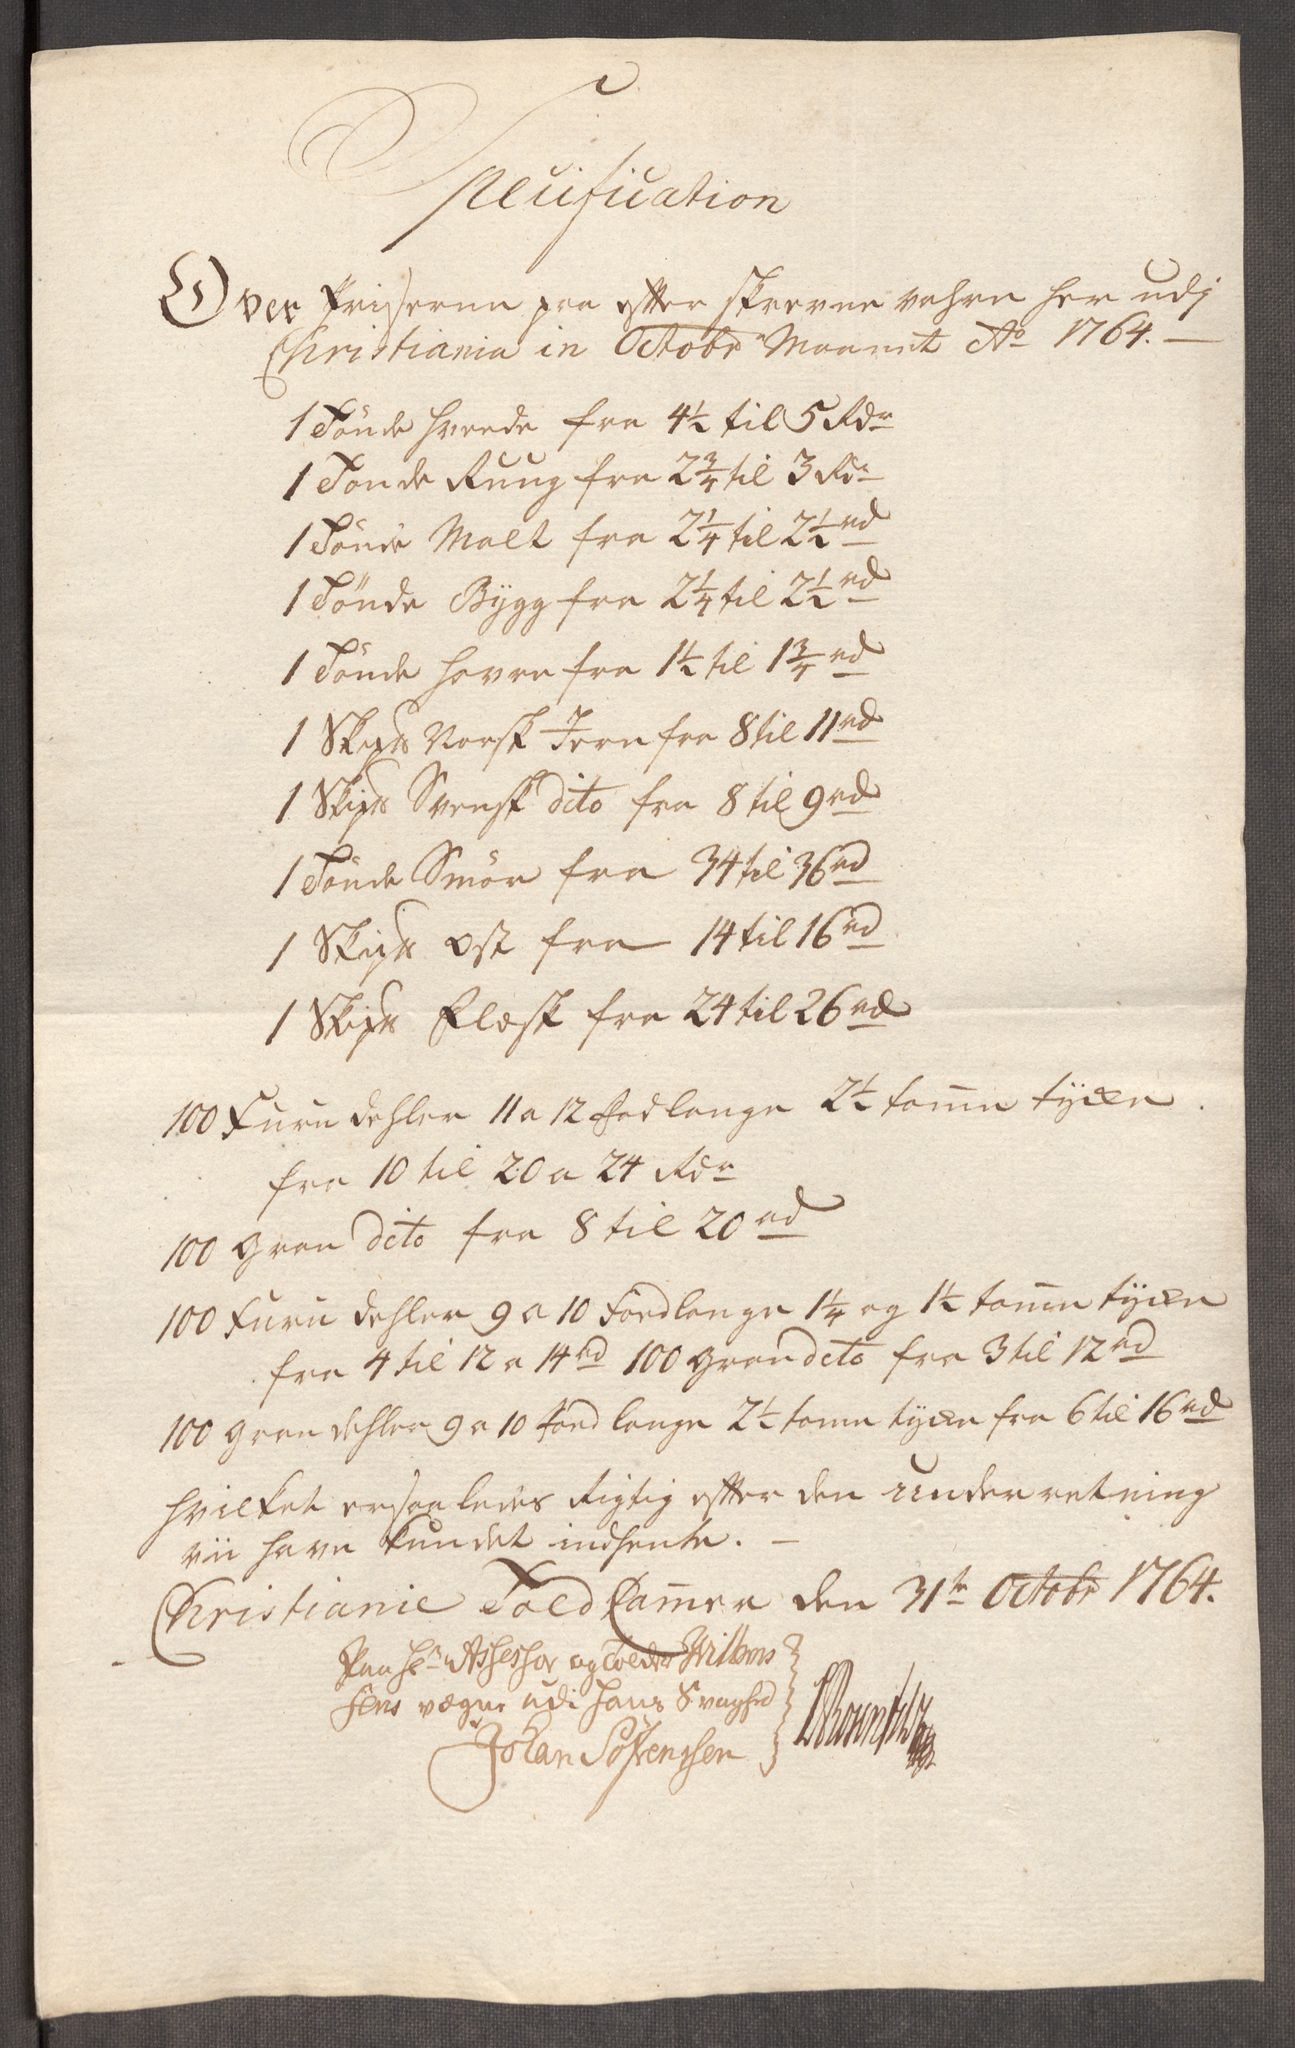 Specification
Over Prisserne paa efter skrevne vahre her udj
Christiania in Octobr Maanet Ao 1764. —
1 Tönde hvede fra 4½ til 5 Rdr
1 Tonde Ruug fra 2¾ til 3 Rdr
1 Tönde Malt fra 2¼ til 2½ rd
1 Tönde Bÿgg fra 2¼ til 2½ rd
1 Tönde havre fra 1½ til 1¾ rd
1 Skip℔ Norsk Jern fra 8 til 11 rd
1 Skip℔ Svensk dito fra 8 til 9 rd
1 Tönde Smör fra 34 til 36 rd
1 Skip℔ Ost fra 14 til 16 rd
1 Skip℔ Flæsk fra 24 til 26 rd
100 Furu dehler 11 a 12 Fod lange 2½ tom̄e tÿcke
fra 10 til 20 a 24 Rdr
100 gran dito fra 8 til 20 rd
100 Furu dehler 9 a 10 Foed lange 1¼ og 1½ tom̄e tÿcke
fra 4 til 12 a 14 rd 100 gran dito fra 3 til 12 rd
100 gran dehler 9 a 10 Foed lange 2½ tome tycke fra 6 til 16 rd
hvilket ersaaledes Rigtig efter den underretning
vii have kundet indhente. —
Christianie Told Cam̄er den 31te Octobr 1764.
Paa Hr Assessor og Tolder Wilhems
sens vægne udi hans Svaghed
Johan Sörensen